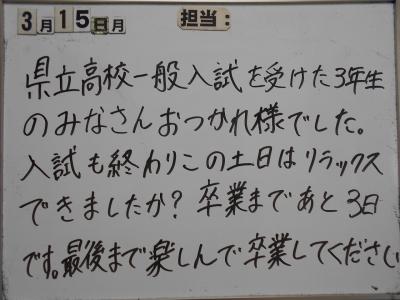 3月15日月 担当:
県立高校一般入試を受けた3年生
のみなさんおつかれ様でした。
入試も終わりこの土日はリラックス
できましたか?卒業まであと3日
です。最後まで楽しんで卒業してください